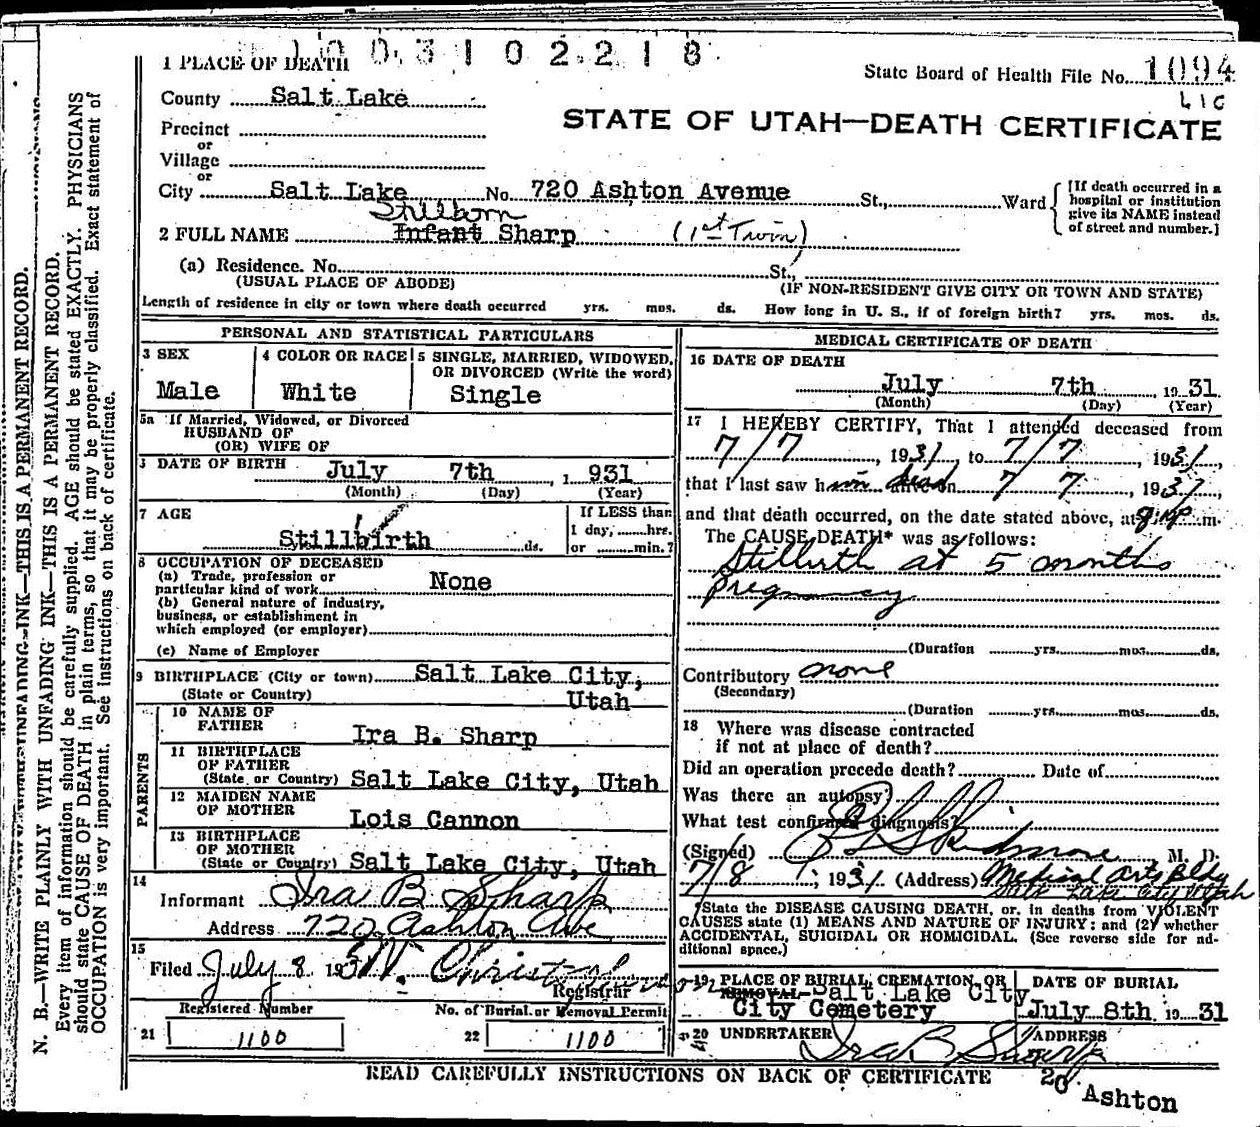 1 0 0 3 1 0 2 2 1 8
1 PLACE OF DEATH
State Board of Health File No. 1094
County Salt Lake
L I C
STATE OF UTAH—DEATH CERTIFICATE
Precinct
or
Village
or
City Salt Lake No. 720 Ashton Avenue St., Ward
[If death occurred in a
hospital or institution
give its NAME instead
of street and number.]
Stillborn
2 FULL NAME Infant Sharp (1st Twin)
(a) Residence. No. St.,
(USUAL PLACE OF ABODE) (IF NON-RESIDENT GIVE CITY OR TOWN AND STATE)
Length of residence in city or town where death occurred yrs. mos. ds. How long in U. S., if of foreign birth? yrs. mos. ds.
PERSONAL AND STATISTICAL PARTICULARS
3 SEX
Male
4 COLOR OR RACE
White
5 SINGLE, MARRIED, WIDOWED,
OR DIVORCED (Write the word)
Single
5a If Married, Widowed, or Divorced
HUSBAND OF
(OR) WIFE OF
DATE OF BIRTH July 7th , 1 931
(Month) (Day) (Year)
7 AGE
Stillbirth ds.
If LESS than
1 day, hrs.
or min.?
8 OCCUPATION OF DECEASED
(a) Trade, profession or
particular kind of work None
(b) General nature of industry,
business, or establishment in
which employed (or employer)
(c) Name of Employer
9 BIRTHPLACE (City or town) Salt Lake City,
(State or Country) Utah
PARENTS
10 NAME OF
FATHER Ira B. Sharp
11 BIRTHPLACE
OF FATHER
(State or Country) Salt Lake City, Utah
12 MAIDEN NAME
OF MOTHER Lois Cannon
13 BIRTHPLACE
OF MOTHER
(State or Country) Salt Lake City, Utah
14
Informant Ira B Sharp
Address 720 Ashton Ave
15
Filed July 8 1931
Registrar
Registered Number
21 1100
No. of Burial or Removal Permit
22 1100
MEDICAL CERTIFICATE OF DEATH
16 DATE OF DEATH
July 7th 19 31
(Month) (Day) (Year)
17 I HEREBY CERTIFY, That I attended deceased from
7/7 , 1931, to 7/7 , 1931,
that I last saw him dead alive on 7 7 , 1931,
and that death occurred, on the date stated above, at m.
The CAUSE DEATH* was as follows:
Stillbirth at 5 months
pregnancy
(Duration yrs. mos. ds.
Contributory none
(Secondary)
(Duration yrs. mos. ds.
18 Where was disease contracted
if not at place of death?
Did an operation precede death? Date of
Was there an autopsy?
What test confirmed diagnosis?
(Signed) Skidmore M. D.
7/8 , 1931 (Address) Medical Arts Bldg
Salt Lake City Utah
*State the DISEASE CAUSING DEATH, or, in deaths from VIOLENT
CAUSES state (1) MEANS AND NATURE OF INJURY; and (2) whether
ACCIDENTAL, SUICIDAL OR HOMICIDAL. (See reverse side for ad-
ditional space.)
19 PLACE OF BURIAL, CREMATION, OR
REMOVAL Salt Lake City
City Cemetery
DATE OF BURIAL
July 8th 19 31
20 UNDERTAKER
Ira B Sharp
ADDRESS
Ashton
READ CAREFULLY INSTRUCTIONS ON BACK OF CERTIFICATE
N. B.—WRITE PLAINLY WITH UNFADING INK—THIS IS A PERMANENT RECORD.
Every item of information should be carefully supplied. AGE should be stated EXACTLY. PHYSICIANS
should state CAUSE OF DEATH in plain terms, so that it may be properly classified. Exact statement of
OCCUPATION is very important. See instructions on back of certificate.